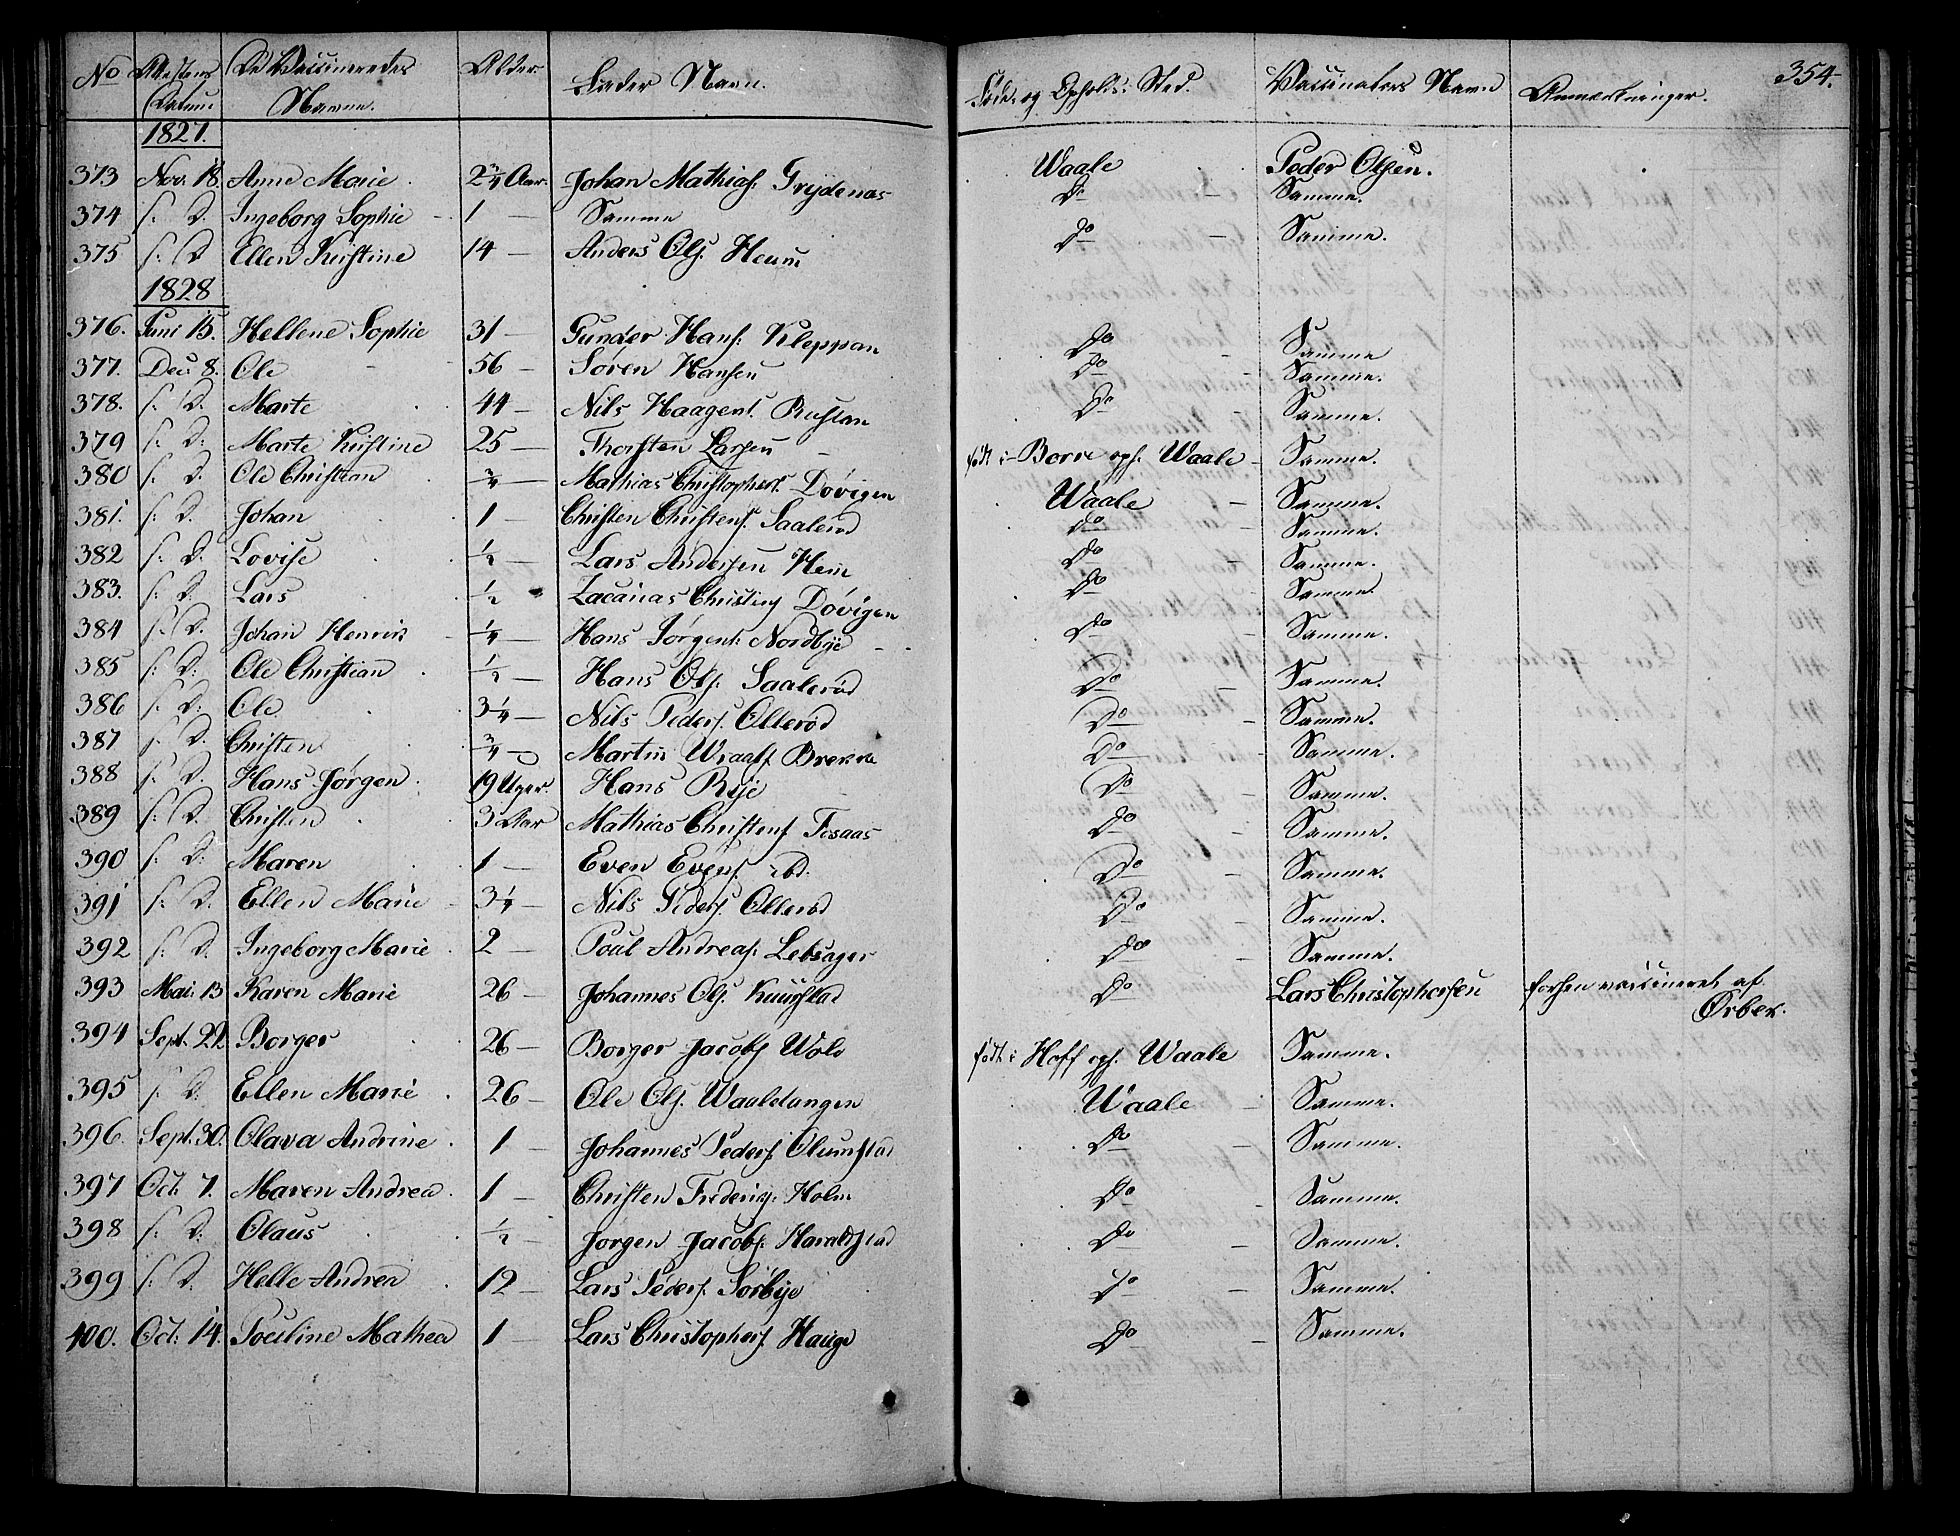 354.
No Attestens Datum De Vaccineredes Navne. Alder Fader Navn. Føde- og Opholds: Sted. Vaccinators Navn Anmærkninger.
1827.
373 Nov. 18. Anne Marie 2 3/4 Aar. Johan Mathias: Waale Peder Olsen.
374 s: D. Ingeborg Sophie 1 — Samme Do Samme.
375 s: D Ellen Kirstine 14 — Anders Ols: Heum Do Samme.
1828
376. Juni 15. Hellene Sophie 31 — Gunder Hans: Kleppan Do Samme
377. Dec: 8. Ole 56 — Søren Hansen Do Samme.
378. s: D. Marte 44 — Nils Haagens: Rustan Do Samme.
379 s: D: Marte Kirstine 25 — Thorsten Larsen født i Borre oph. Waale Samme.
380 s: D. Ole Christian 3/4 — Mathias Christophers: Døvigen Waale Samme.
381. s: D. Johan 1 — Christen Christens: Saalerød do Samme.
382 s: D. Lovise 1/2 — Lars Andersen Hem Do Samme.
383. s: D. Lars 1/2 Zacarias Christens Døvigen Do Samme.
384 s: D. Johan Henrik 1/4 — Hans Jørgens: Nordbye Do Samme.
385 s: D: Ole Christian 1/2 — Hans Ols: Saalerød Do Samme.
386 s: D: Ole 3 1/4 — Nils Peders. Ollerød Do Samme.
387 s: D. Christen 3/4 — Martin Waals Brekke Do Samme.
388 s: D. Hans Jørgen 19 Uger. Hans Rye Do Samme.
389 s: D. Christen 3 Aar Mathias Christens Fosaas Do Samme.
390 s: D: Maren 1 — Even Evens. ibd. Do Samme.
391 s: D. Ellen Marie 3 1/4 — Nils Peders. Ollerød Do Samme.
392 s: D. Ingeborg Marie 2 — Poul Andreas: Lebsager Do Samme.
393 Mai: 13 Karen Marie 26 — Johannes Ols. Do Lars Christophersen forhen vaccineret af Ørbek.
394 Sept. 22. Borger 26 — Borger Jacobs Wold født i Hoff oph. Waale Samme.
395 s: D: Ellen Marie 26 — Ole Ols. Waaletangen Waale Samme.
396. Sept. 30. Olava Andrine 1 — Johannes Peders. Olumstad Do Samme.
397 Oct: 7. Maren Andrea 1 — Christen Frederiks: Holm Do Samme.
398 s: D: Olaus 1/2 — Jørgen Jacobs: Haraldstad Do Samme.
399 s: D. Helle Andrea 12 — Lars Peders. Sørbye Do Samme.
400. Oct: 14. Pouline Mathea 1 — Lars Christophers. Hauge Do Samme.